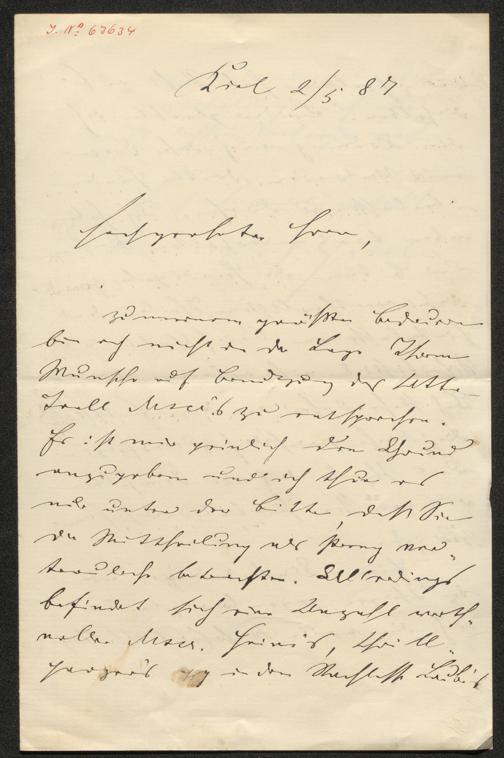 J. Nº: 63634
Kiel 2/5 87
Hochgeehrter Herr,
Zu meinem größten Bedauern
bin ich nicht in der Lage Ihrem
Wunsche auf Benutzung des
Mscr.'s zu entsprechen.
Es ist mir peinlich den Grund
anzugeben und ich thue es
nur unter der Bitte, daß Sie
die Mittheilung als streng ver-
trauliche betrachten. Allerdings
befindet sich eine Anzahl werth-
voller Mscr. Heine's, Grill-
parzer's in dem Nachlasse Laube's